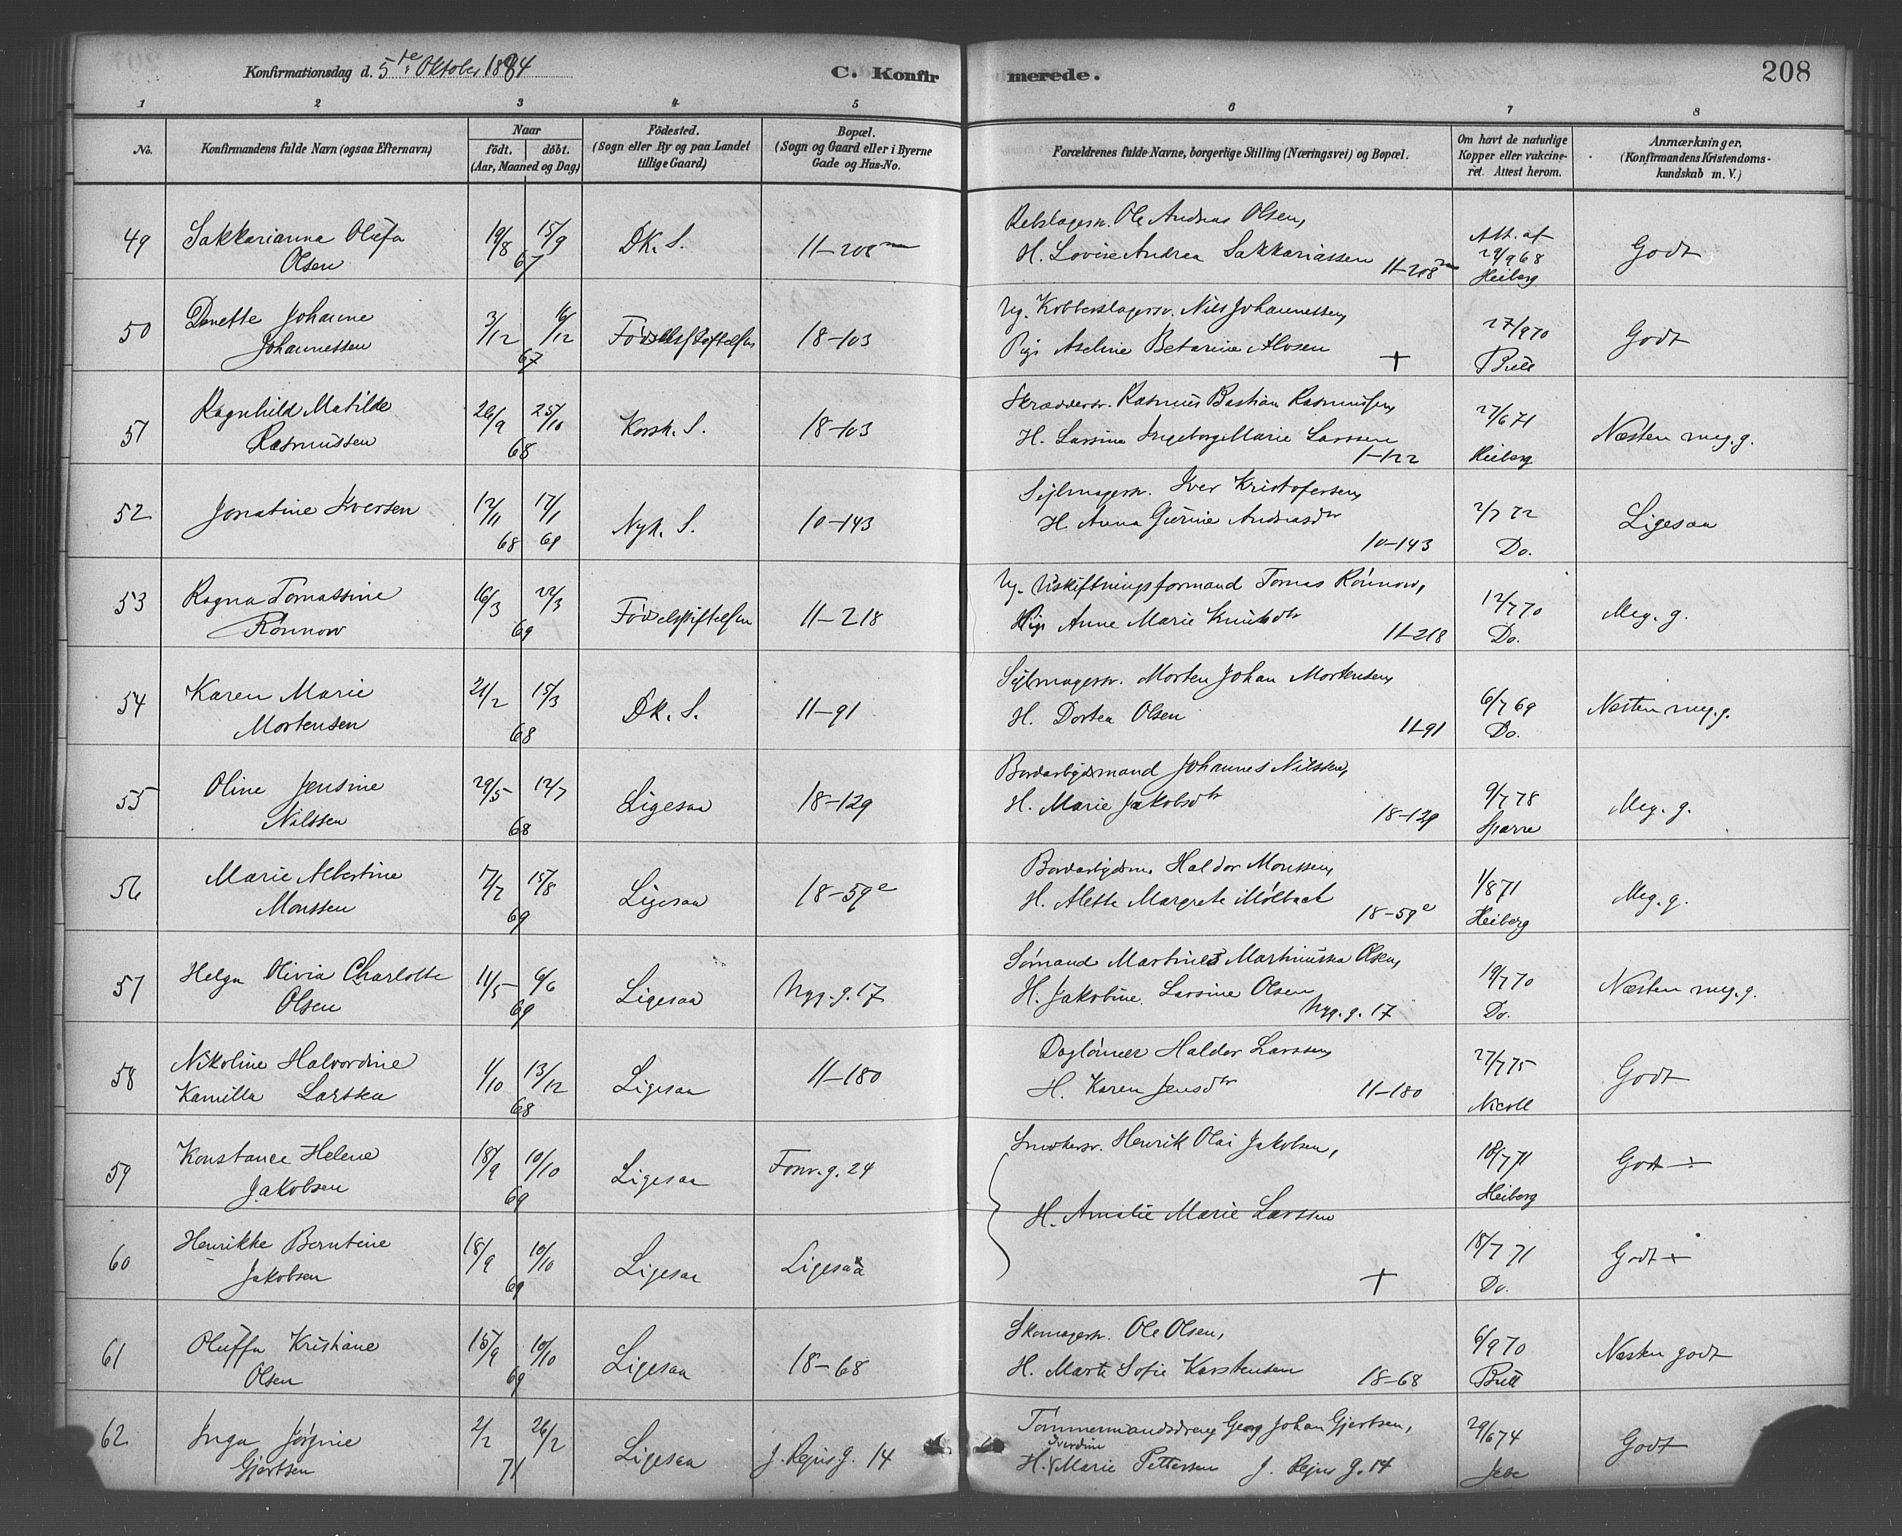 Konfirmationsdag d. 5te Oktober 1884
C. Konfirmerede.
208
1 2 3 4 5 6 7 8
No.
Konfirmandens fulde Navn (ogsaa Efternavn)
Naar
födt. döbt.
(Aar, Maaned og Dag)
Födested.
(Sogn eller By og paa Landet
tillige Gaard)
Bopæl.
(Sogn og Gaard eller i Byerne
Gade og Hus-No.
Forældrenes fulde Navne, borgerlige Stilling (Næringsvei) og Bopæl.
Om havt de naturlige
Kopper eller vakcine-
ret. Attest herom.
Anmærkninger,
(Konfirmandens Kristendoms-
kundskab m. V.)
49 Sakkarianna Olufa
Olsen
19/8 15/9 67 DK. S. 11-208
Rebslagersv. Ole Andreas Olsen,
H. Lovise Andrea Sakkariassen 11-208
Att. af 29/9 68 Heiberg
Godt
50 Denette Johanne
Johannessen
3/12 16/12 67 Fødselsstiftelsen 18-103
Ug. Kobberslagersv. Nils Johannessen,
Pige Aseline Betarine Alvsen +
27/9 70 Bull
Godt
51 Ragnhild Matilde
Rasmussen
26/9 25/10 68 Korsk. S. 18-103
Skræddersv. Rasmus Bastian Rasmussen,
H. Larsine Ingeborg Marie Larssen 1-122
27/6 71 Heiberg
Næsten meg. g.
52 Jonatine Iversen
12/11 68 17/1 69 Nyk. S. 10-143
Seilmagersv. Iver Kristofersen,
H. Anna Gurine Andreasdtr 10-143
2/7 72 Do.
Ligesaa
53 Ragna Tomassine
Rönnow
16/3 22/3 69 Fødselsstiftelsen 11-218
Ug. Udskiftningsformand Tomas Rönnow,
Pige Anne Marie Knutsdtr 11-218
12/7 70 Do.
Meg. g.
54 Karen Marie
Mortensen
21/2 15/3 68 DK. S. 11-91
Seilmagersv. Morten Johan Mortensen,
H. Dortea Olsen 11-91
6/7 69 Do.
Næsten meg. g.
55 Oline Jensine
Nilssen
29/5 12/7 68 Ligesaa 18-129
Bordarbeidsmand Johannes Nilssen,
H. Marie Jakobsdtr 18-129
9/7 78 Sparre
Meg. g.
56 Marie Albertine
Monssen
17/7 15/8 69 Ligesaa 18-59e
Bordarbeidsm. Haldor Monssen,
H. Alette Margrete Mölbach 18-59e
1/8 71 Heiberg
Meg. g.
57 Helga Olivia Charlotte
Olsen
11/5 6/6 69 Ligesaa Nyg. g. 17
Sömand Martines Martinuska Olsen,
H. Jakobine Larsine Olsen Nyg. g. 17
19/7 70 Do.
Næsten meg. g.
58 Nikoline Halvordine
Kamilla Larssen
1/10 13/12 68 Ligesaa 11-180
Daglönner Haldor Larssen,
H. Karen Jensdtr 11-180
27/7 75 Nicoll
Godt
59 Konstance Helene
Jakobsen
18/9 10/10 69 Ligesaa Forv. g. 24
Smedsv. Henrik Olai Jakobsen,
18/7 71 Heiberg
Godt ÷
H. Amalie Marie Larssen
60 Henrikke Berntine
Jakobsen
18/9 10/10 69 Ligesaa Ligesaa
+
18/7 71 Do.
Godt ÷
61 Oluffa Kristiane
Olsen
15/9 10/10 69 Ligesaa 18-68
Skomagersv. Ole Olsen,
H. Marte Sofie Karstensen 18-68
6/9 70 Bull
Næsten godt
62 Inga Jørgine
Gjertsen
2/2 26/2 71 Ligesaa J. Rejus g. 14
Tömmermandsdreng Georg Johan Gjertsen,
Iverdine
H. Marie Pettersen J. Rejus g. 14
29/6 74
Godt